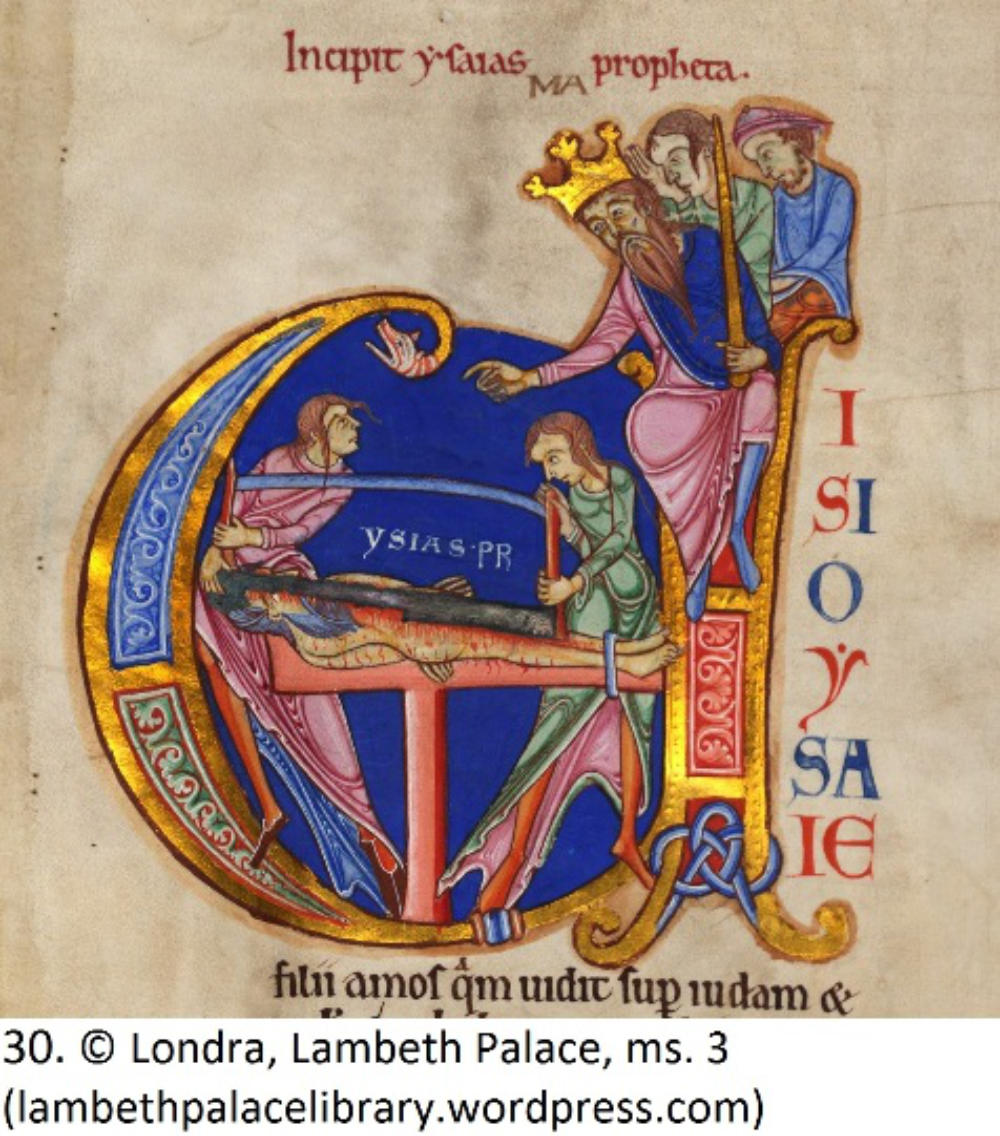 Incipit ẏsaias propheta.
MA
YSIAS·PR
I
SI
O
Ẏ
SA
IE
filii amoſ q̊m uidit ſup iudam &
30. © Londra, Lambeth Palace, ms. 3
(lambethpalacelibrary.wordpress.com)